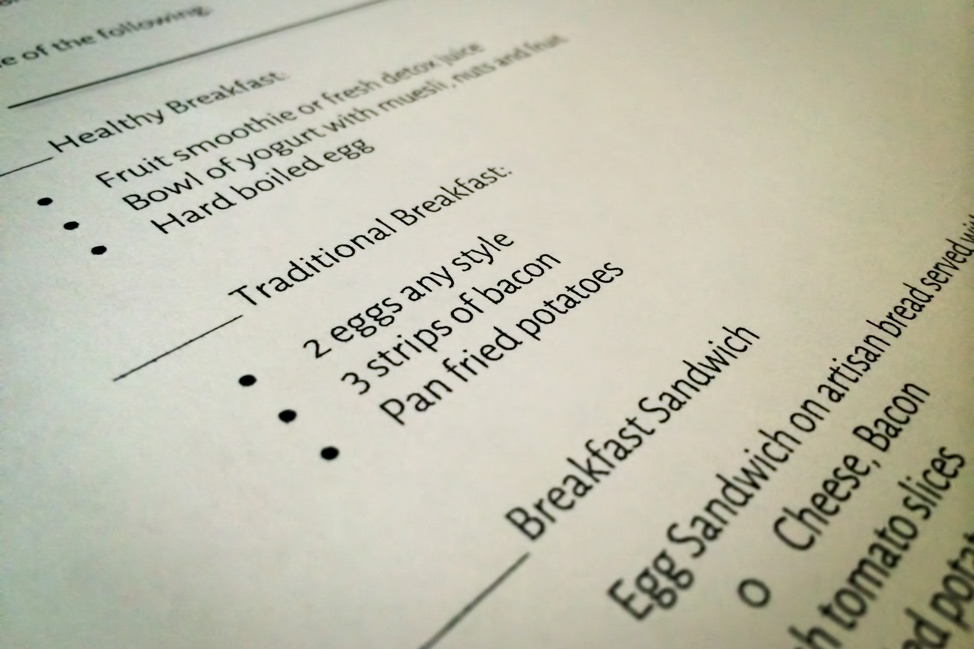 e of the following.
Healthy Breakfast:
• Fruit smoothie or fresh detox juice
• Bowl of yogurt with muesli, nuts and fruit
• Hard boiled egg
Traditional Breakfast:
• 2 eggs any style
• 3 strips of bacon
• Pan fried potatoes
Breakfast Sandwich
Egg Sandwich on artisan bread served wit
o Cheese, Bacon
h tomato slices
ed pota